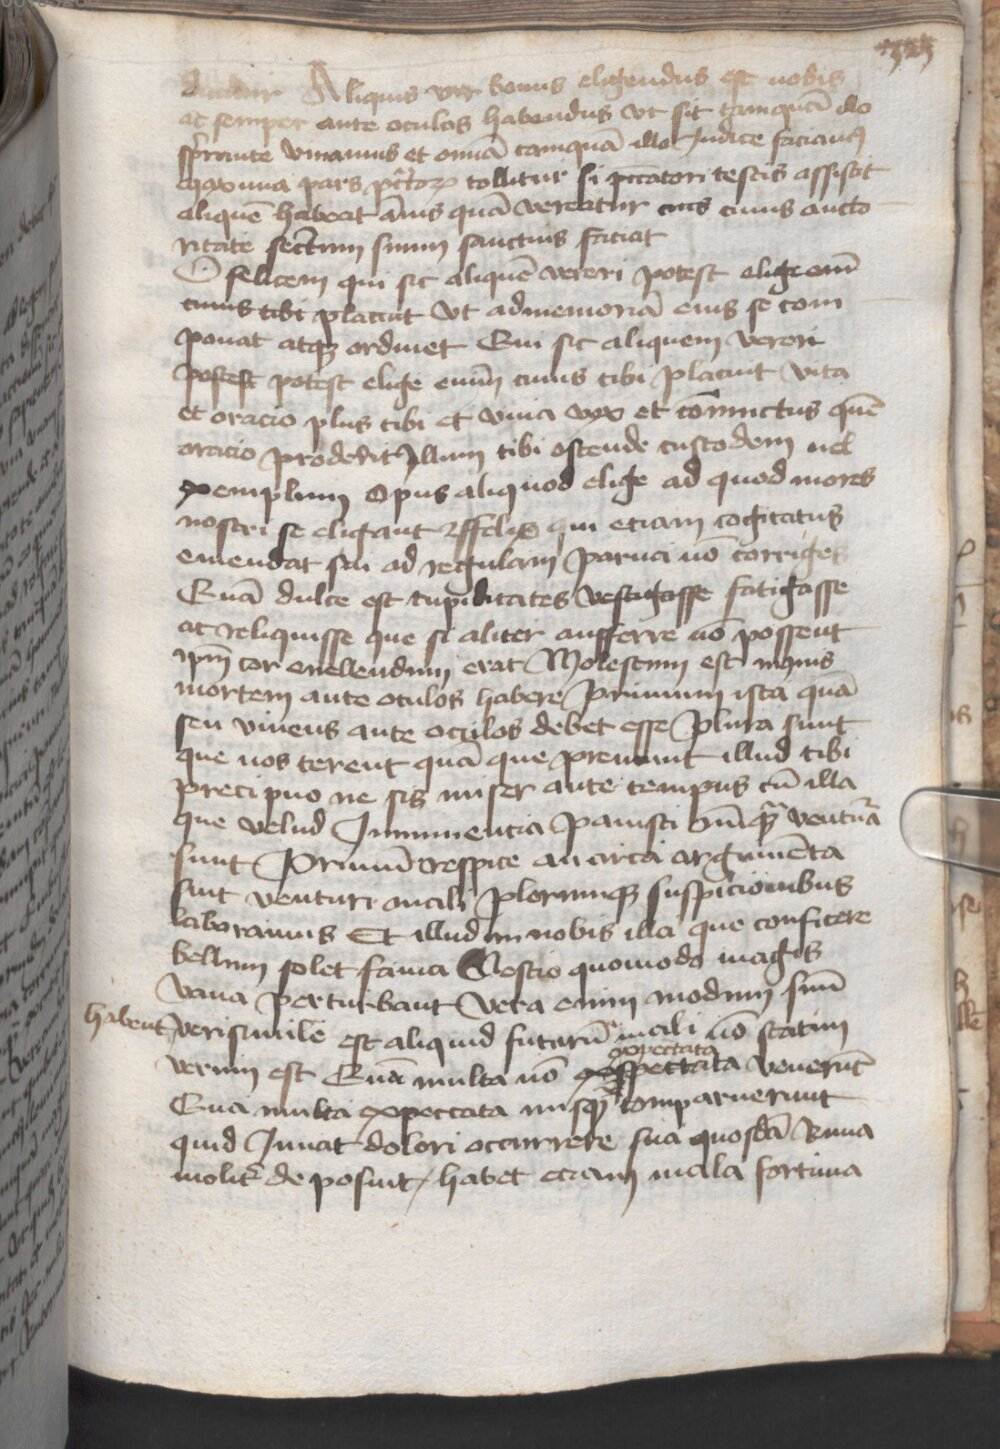 Aliquis vir bonus eligendus est nobis
ac semper ante oculos habendus vt sit tanquā illo
sp̄cante viuamus et om̄ia tamquā illo Judice faciamꝰ
maxima pars pctōꝝ tollitur si pccatori testis assistit
aliquē habeat aīus quē vereatur cuius aucto
ritate secretum suum sanctius faciat
O felicem qui sic aliquē vereri potest elige eum̄
cuius tibi placuit vt ad memoriā eius se com
ponat atqꝫ ordinet Qui sic aliquem vereri
potest elige enim̄ cuius tibi placuit vita
et oracio plus tibi et viua vox et cōuinctus quē
oracio proderit Illum tibi ostende custodem uel
exemplum Opus aliquod elige ad quod mores
nostri se eligant qui etiam cogitatus
emendat sui ad regulam parua nō corriges
Quā dulce est cupiditates vestigasse fatigasse
ac reliquisse que si aliter aufferre nō possent
ip̄m cor euellendum erat Molestum est inquis
mortem ante oculos habere Primum ista quā
seu viuens ante oculos debet esse Plura sunt
que nos terent quā que premunt illud tibi
precipuo ne sis miser ante tempus cū illa
que velud Imminentia pauisti nūqꝫ ventura
sunt Primū respice an circa argumēta
sint venturi mali plerumqꝫ suspicionibus
laboramus Et illud in nobis illa que conficere
bellum solet fama Nescio quomodo magis
vana perturbant vera enim modum suū
habent verisimile est aliquid futurū mali nō statim
verum est Quā multa nō expectata venerūt
Qua multa expectata nusqꝫ comparuerunt
quid Juuat dolori occurrere sua quosdā Ruina
molit̄ deposuit / habet etiam mala fortuna